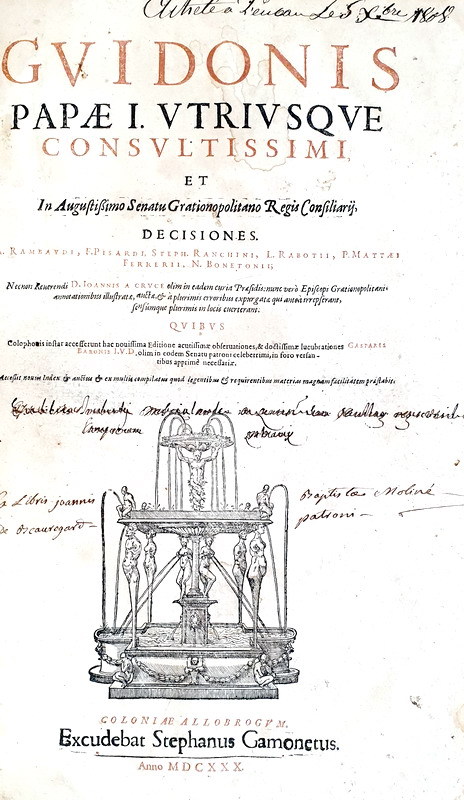 Acheté à Le 5 Xbre 1808
GVIDONIS
PAPÆ I. VTRIVSQVE
CONSVLTISSIMI,
ET
In Augustissimo Senatu Grationopolitano Regis Consiliarij,
DECISIONES.
A. RAMBAVDI, F. PISARDI, STEPH. RANCHINI, L. RABOTII, P. MATTÆI
FERRERII, N. BONETONII;
Necnon Reuerendi D. IOANNIS A CRVCE olim in eadem curia Præsidis: nunc verò Episcopi Grationopolitani
annotationibus illustratæ, auctæ, & à plurimis erroribus expurgatæ qui antea irrepserant,
sensumque plurimis in locis euerterant.
QVIBVS
Colophonis instar accesserunt hac nouissima Editione acutissimæ obseruationes, & doctissimæ lucubrationes GASPARIS
BARONIS I.V.D. olim in eodem Senatu patroni celeberrimi, in foro versan-
tibus apprimè necessariæ.
Accessit nouus Index & auctior & ex multis compilatus quod legentibus & requirentibus materias magnam facilitatem præstabit.
Ex Libris joannis Baptistæ Moliné
de Beauregard patroni
COLONIAE ALLOBROGVM.
Excudebat Stephanus Gamonetus.
Anno MDCXXX.